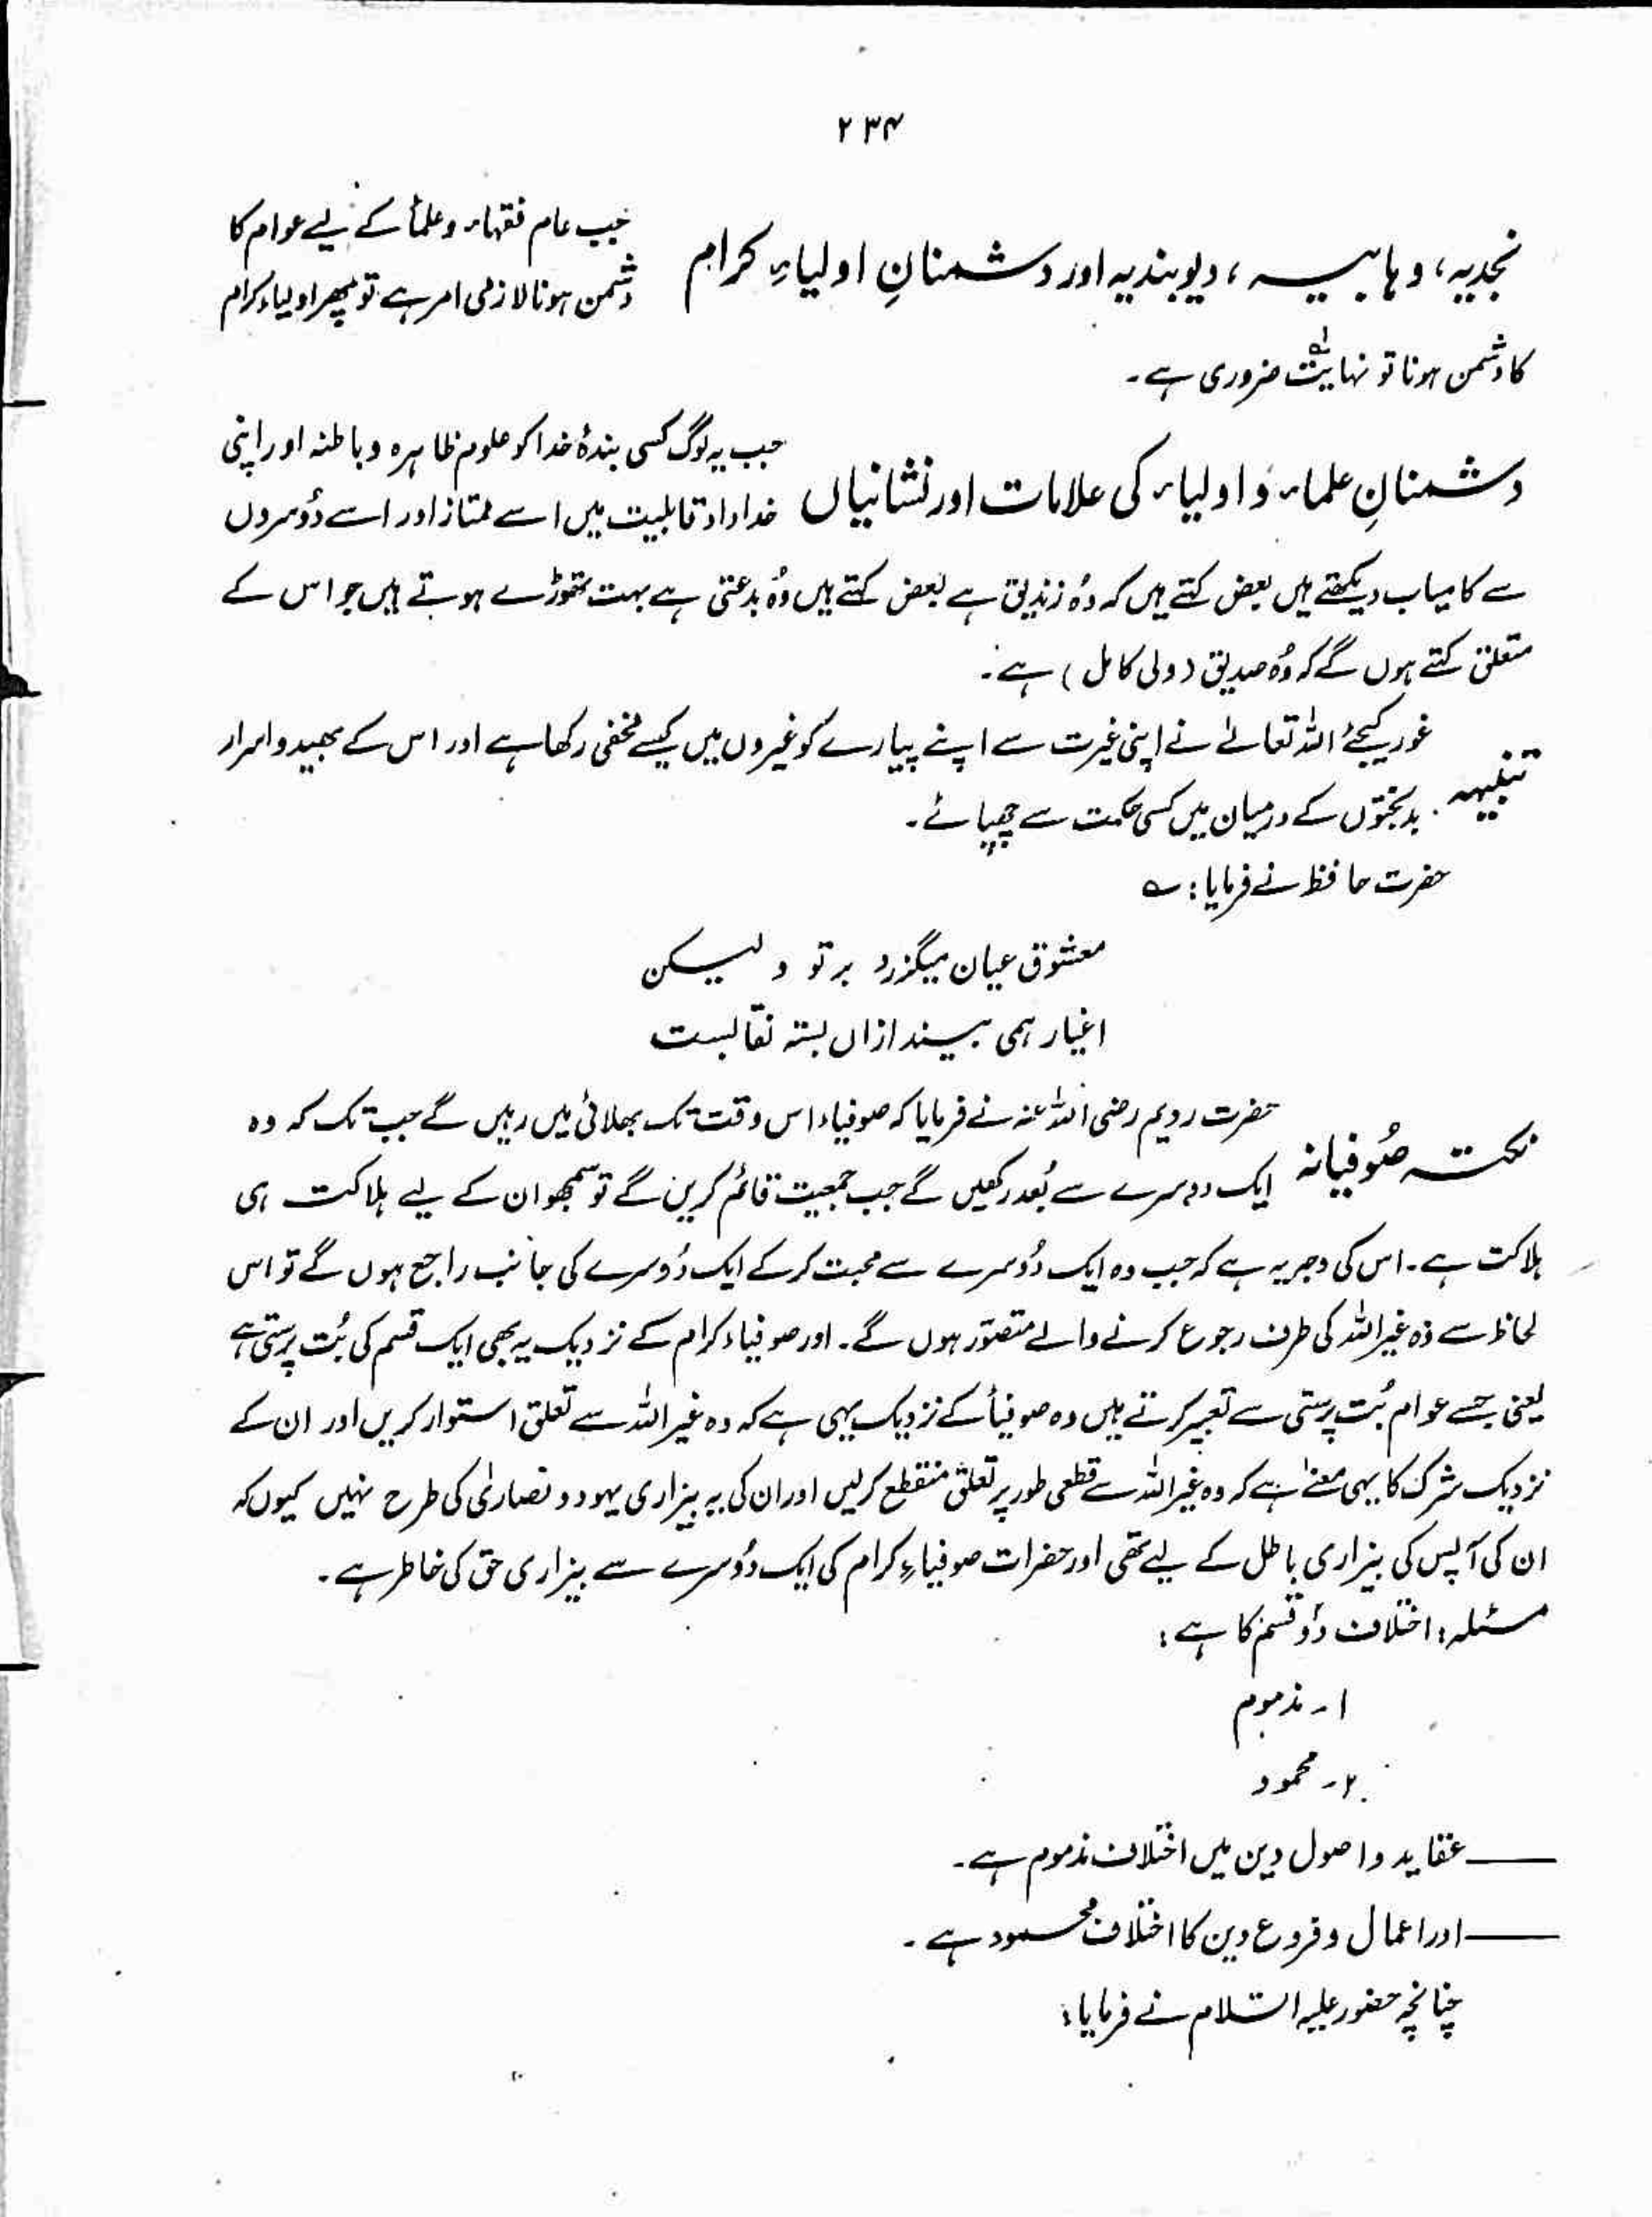 ۲۳۴
نجدیہ، وہابیہ، دیوبندیہ اور دشمنانِ اولیاءِ کرام
جب عام فقہاء و علماً کے لیے عوام کا
دشمن ہونا لازمی امر ہے تو پھر اولیاء کرام
کا دشمن ہونا تو نہایت ضروری ہے۔
دشمنانِ علماء و اولیاء کی علامات اور نشانیاں
جب یہ لوگ کسی بندۂ خدا کو علوم ظاہرہ و باطنہ اور اپنی
خداداد قابلیت میں اسے ممتاز اور اسے دُوسروں
سے کامیاب دیکھتے ہیں بعض کہتے ہیں کہ وُہ زندیق ہے بعض کہتے ہیں وُہ بدعتی ہے بہت تھوڑے ہوتے ہیں جو اس کے
متعلق کہتے ہوں گے کہ وُہ صدیق (ولی کامل) ہے۔
تنبیہہ
غور کیجئے اللہ تعالےٰ نے اپنی غیرت سے اپنے پیارے کو غیروں میں کیسے مخفی رکھا ہے اور اس کے بھید و اسرار
بدبختوں کے درمیان میں کسی حکمت سے چھپائے۔
حضرت حافظ نے فرمایا: ؎
معشوق عیان میگزرد بر تو و لیسکن
اغیار ہمی بیند ازاں بستہ نقابست
نکتہ صُوفیانہ
حضرت رویم رضی اللہ عنہ نے فرمایا کہ صوفیاء اس وقت تک بھلائی میں رہیں گے جب تک کہ وہ
ایک دوسرے سے بُعد رکھیں گے جب جمعیت قائم کریں گے تو سمجھو ان کے لیے ہلاکت ہی
ہلاکت ہے۔ اس کی وجہ یہ ہے کہ جب وہ ایک دُوسرے سے محبت کر کے ایک دُوسرے کی جانب راجع ہوں گے تو اس
لحاظ سے وُہ غیر اللہ کی طرف رجوع کرنے والے متصوّر ہوں گے۔ اور صوفیاء کرام کے نزدیک یہ بھی ایک قسم کی بُت پرستی ہے
یعنی جسے عوام بُت پرستی سے تعبیر کرتے ہیں وہ صوفیأ کے نزدیک یہی ہے کہ وہ غیر اللہ سے تعلق استوار کریں اور ان کے
نزدیک شرک کا یہی معنےٰ ہے کہ وہ غیر اللہ سے قطعی طور پر تعلق منقطع کرلیں اور ان کی یہ بیزاری یہود و نصاریٰ کی طرح نہیں کیوں کہ
ان کی آپس کی بیزاری باطل کے لیے تھی اور حضرات صوفیاءِ کرام کی ایک دُوسرے سے بیزاری حق کی خاطر ہے۔
مسئلہ: اختلاف دو قسم کا ہے:
۱۔ مذموم
۲۔ محمود
—— عقاید و اصول دین میں اختلاف مذموم ہے۔
—— اور اعمال و فروع دین کا اختلاف محمود ہے۔
چنانچہ حضور علیہ السّلام نے فرمایا: